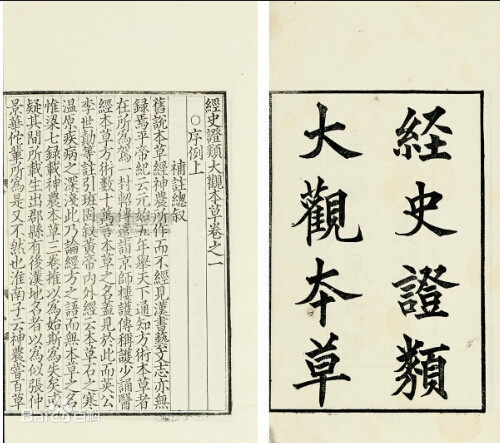 経史證類
大觀本草
經史證類大觀本草卷之一
○序例上
補註總叙
舊說本草經神農所作而不經見漢書藝文志亦無
録焉平帝紀云元始五年舉天下通知方術本草者
在所為駕一封軺傳遣詣京師樓護傳稱護少誦醫
經本草方術數十萬言本草之名蓋見於此而英公
李世勣等註引班固叙黄帝内外經云本草石之寒
温原疾病之深淺此乃論經方之語而無本草之名
惟梁七録載神農本草三卷推以為始斯為失矣或
疑其間所載生出郡縣有後漢地名者以為似張仲
景華佗輩所為是又不然也淮南子云神農嘗百草
Baidu百科